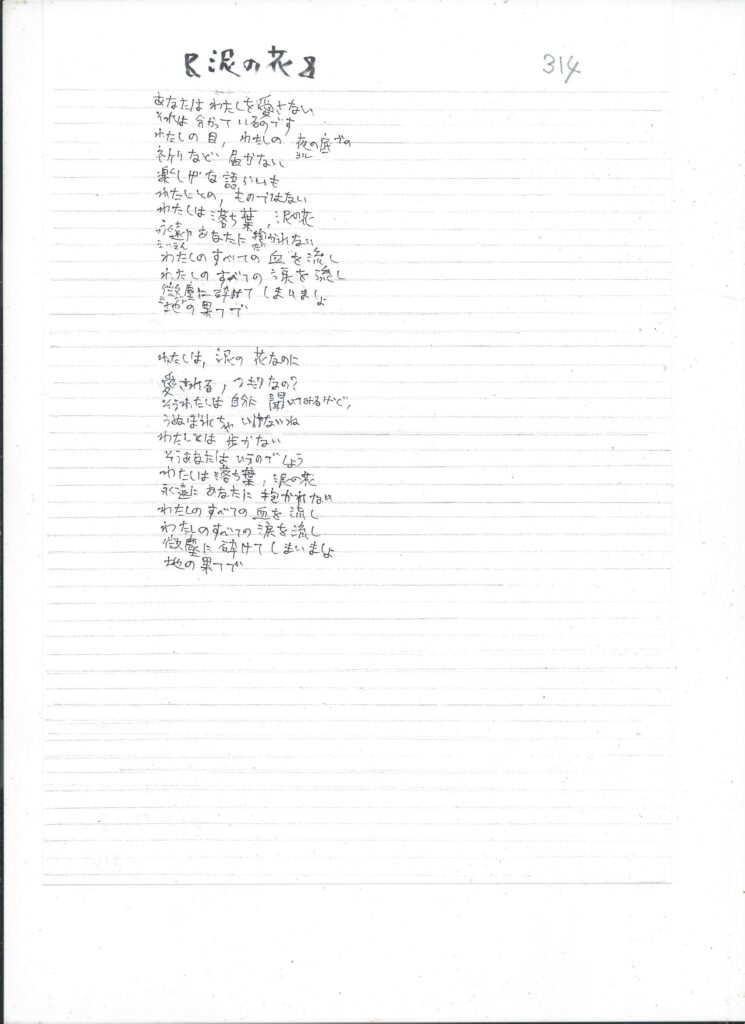 【泥の花】
314
あなたは わたしを愛さない
それは 分かっているのです
わたしの目, わたしの 夜の底での
よル
祈りなど 届かない
楽しげな語らいも
わたしとの, ものではない
わたしは落ち葉, 泥の花
永遠に あなたに 抱かれない
えいえん だ
わたしのすべての 血を流し
わたしの すべての 涙を流し
微塵に砕けて しまいましょ
地の果てで
わたしは, 泥の 花なのに
愛される, つもりなの?
そうわたしは 自分に 聞いてみるけど,
うぬぼれちゃ いけないね
わたしとは 歩かない
そうあなたは いうのでしょう
わたしは落ち葉, 泥の花
永遠に あなたに 抱かれない
わたしのすべての 血を 流し
わたしのすべての 涙を流し
微塵に 砕けて しまいましょ
地の果てで